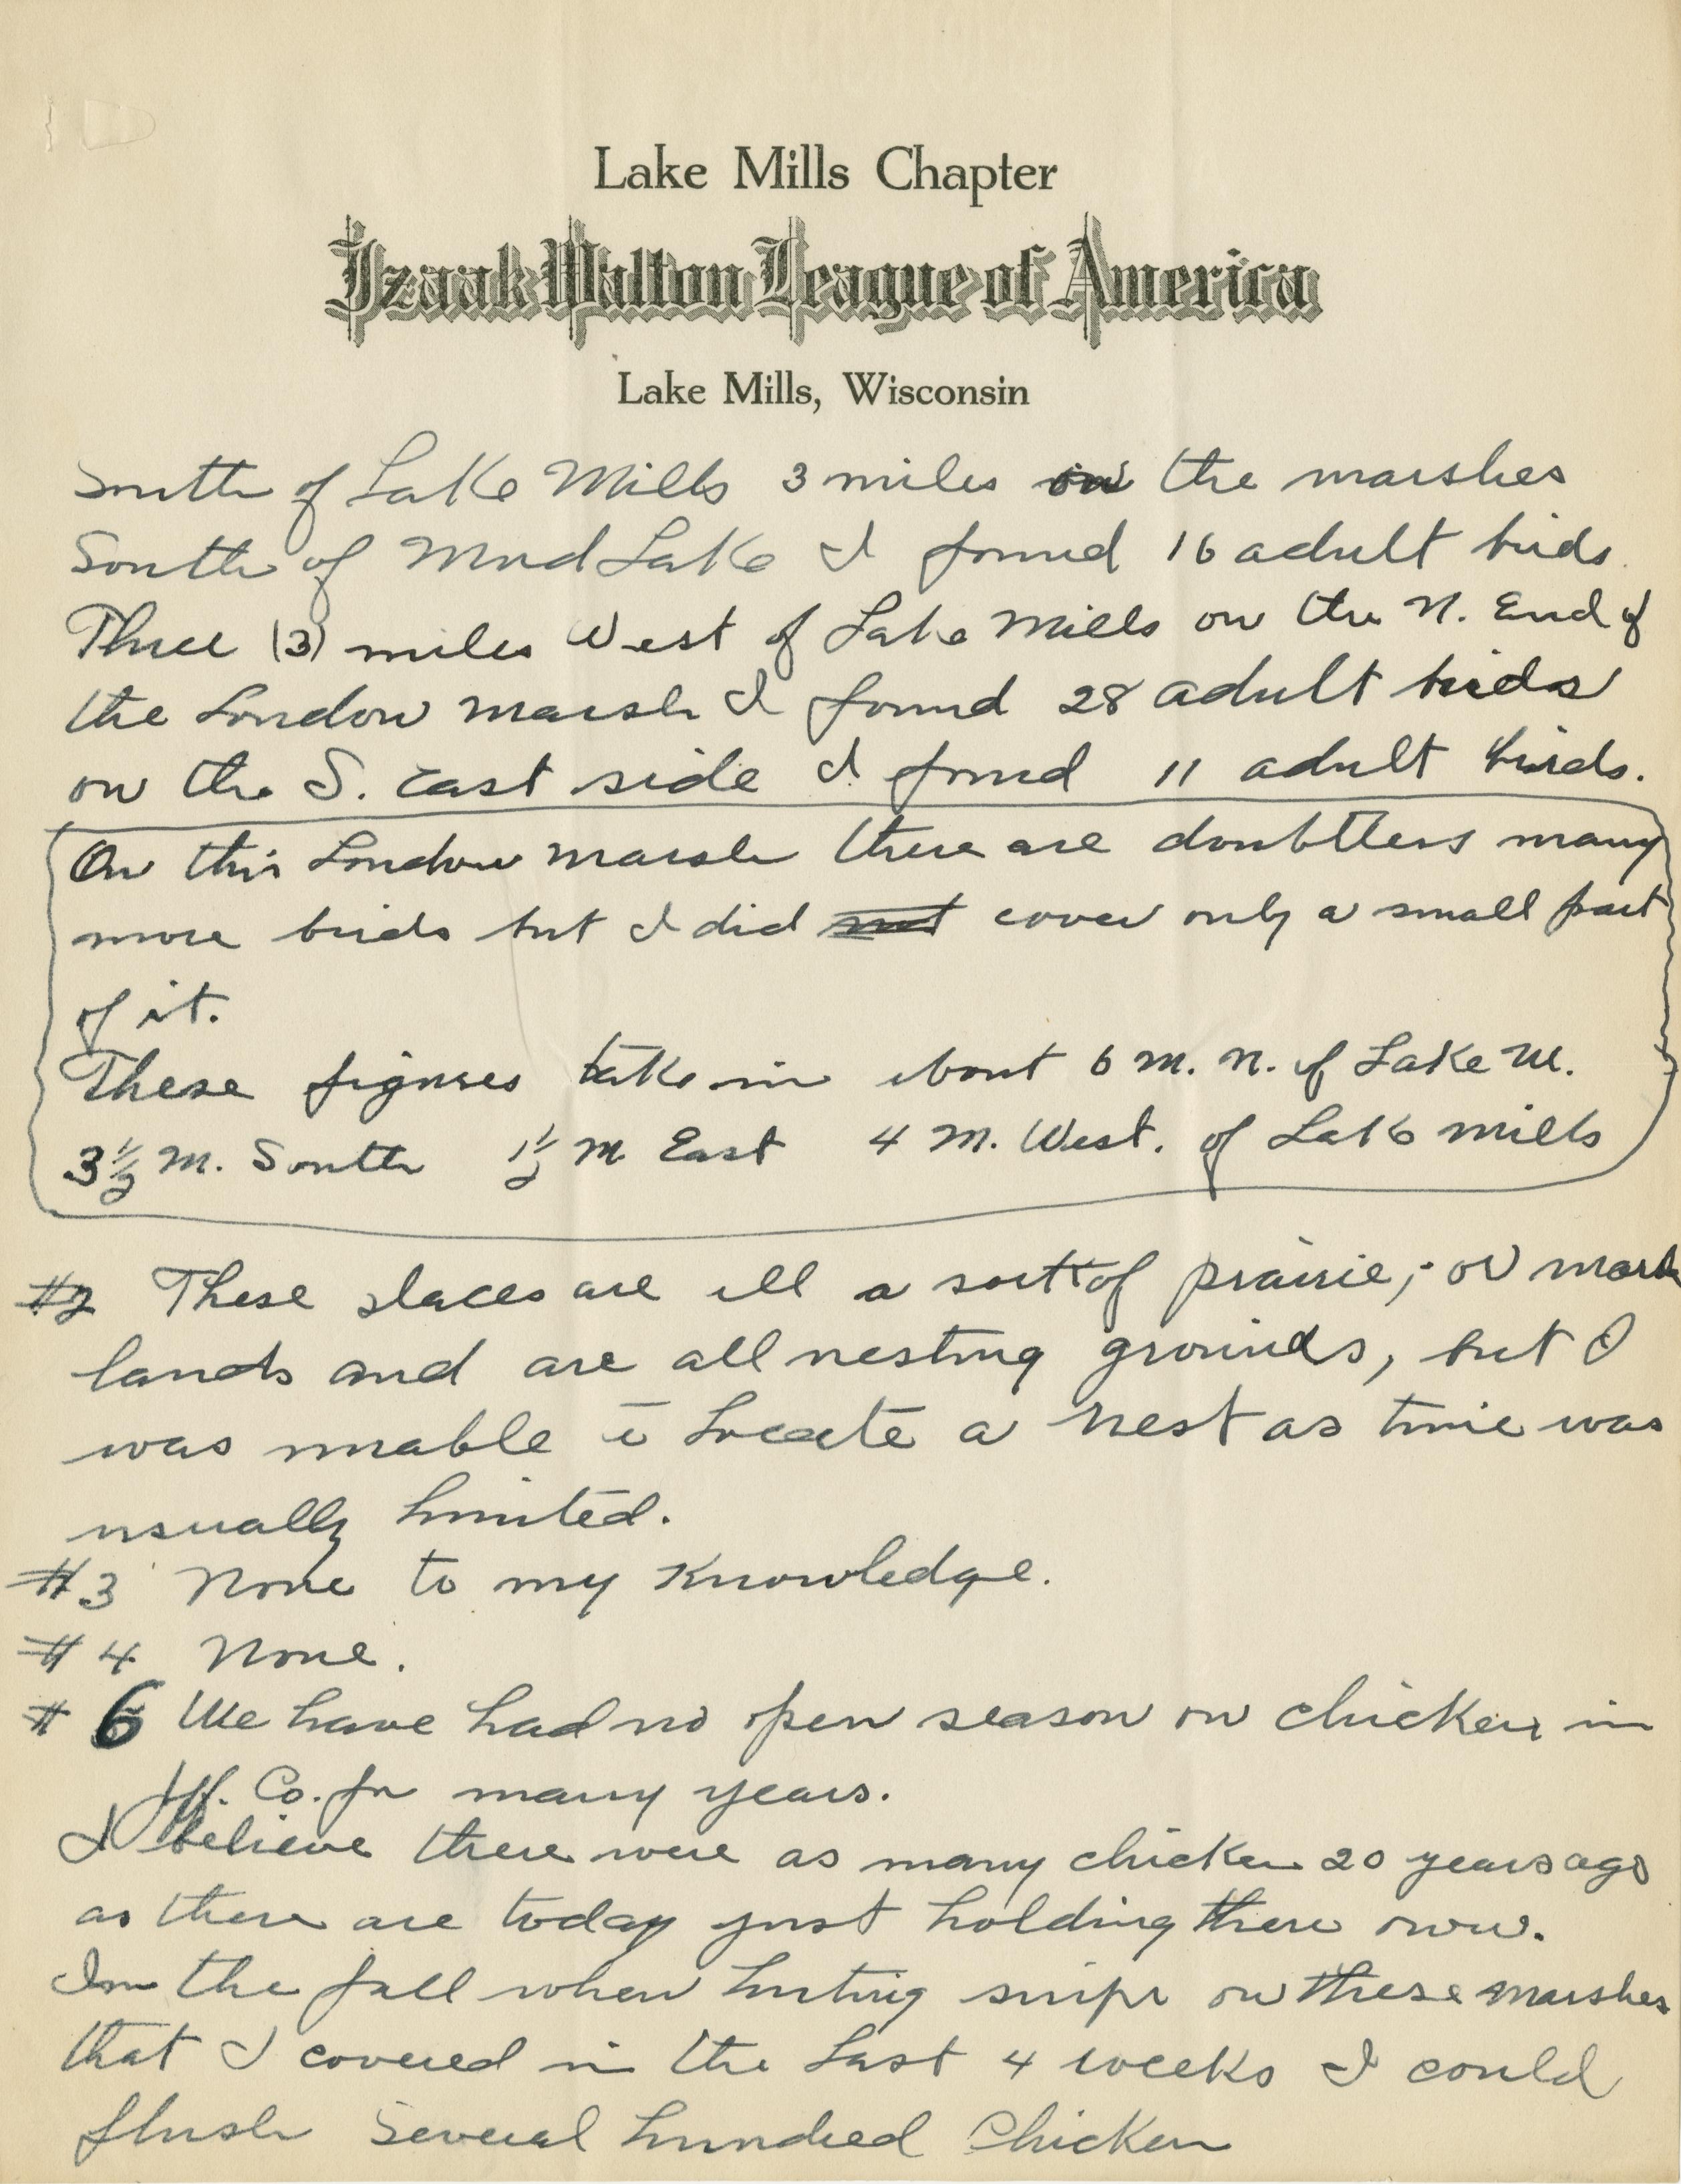 Lake Mills Chapter
Izaak Walton League of America
Lake Mills, Wisconsin
South of Lake Mills 3 miles on the marshes
South of Mud Lake I found 16 adult birds.
Three (3) miles West of Lake Mills on the N. End of
the London marsh I found 28 adult birds
on the S. East side I found 11 adult birds.
On this London marsh there are doubtless many
more birds but I did not cover only a small part
of it.
These figures take in about 6 m. N. of Lake M.
3 1/2 M. South 1 1/2 M East 4 M. West. of Lake Mills
#2 These places are all a sort of prairie, or marsh
lands and are all nesting grounds, but I
was unable to Locate a Nest as time was
usually limited.
#3 None to my Knowledge.
#4 None.
#6 We have had no open season on chicken in
Jeff. Co. for many years.
I believe there were as many chicken 20 years ago
as there are today just holding there own.
In the fall when hunting snipe on these marshes
that I covered in the Last 4 weeks I could
flush several hundred Chicken